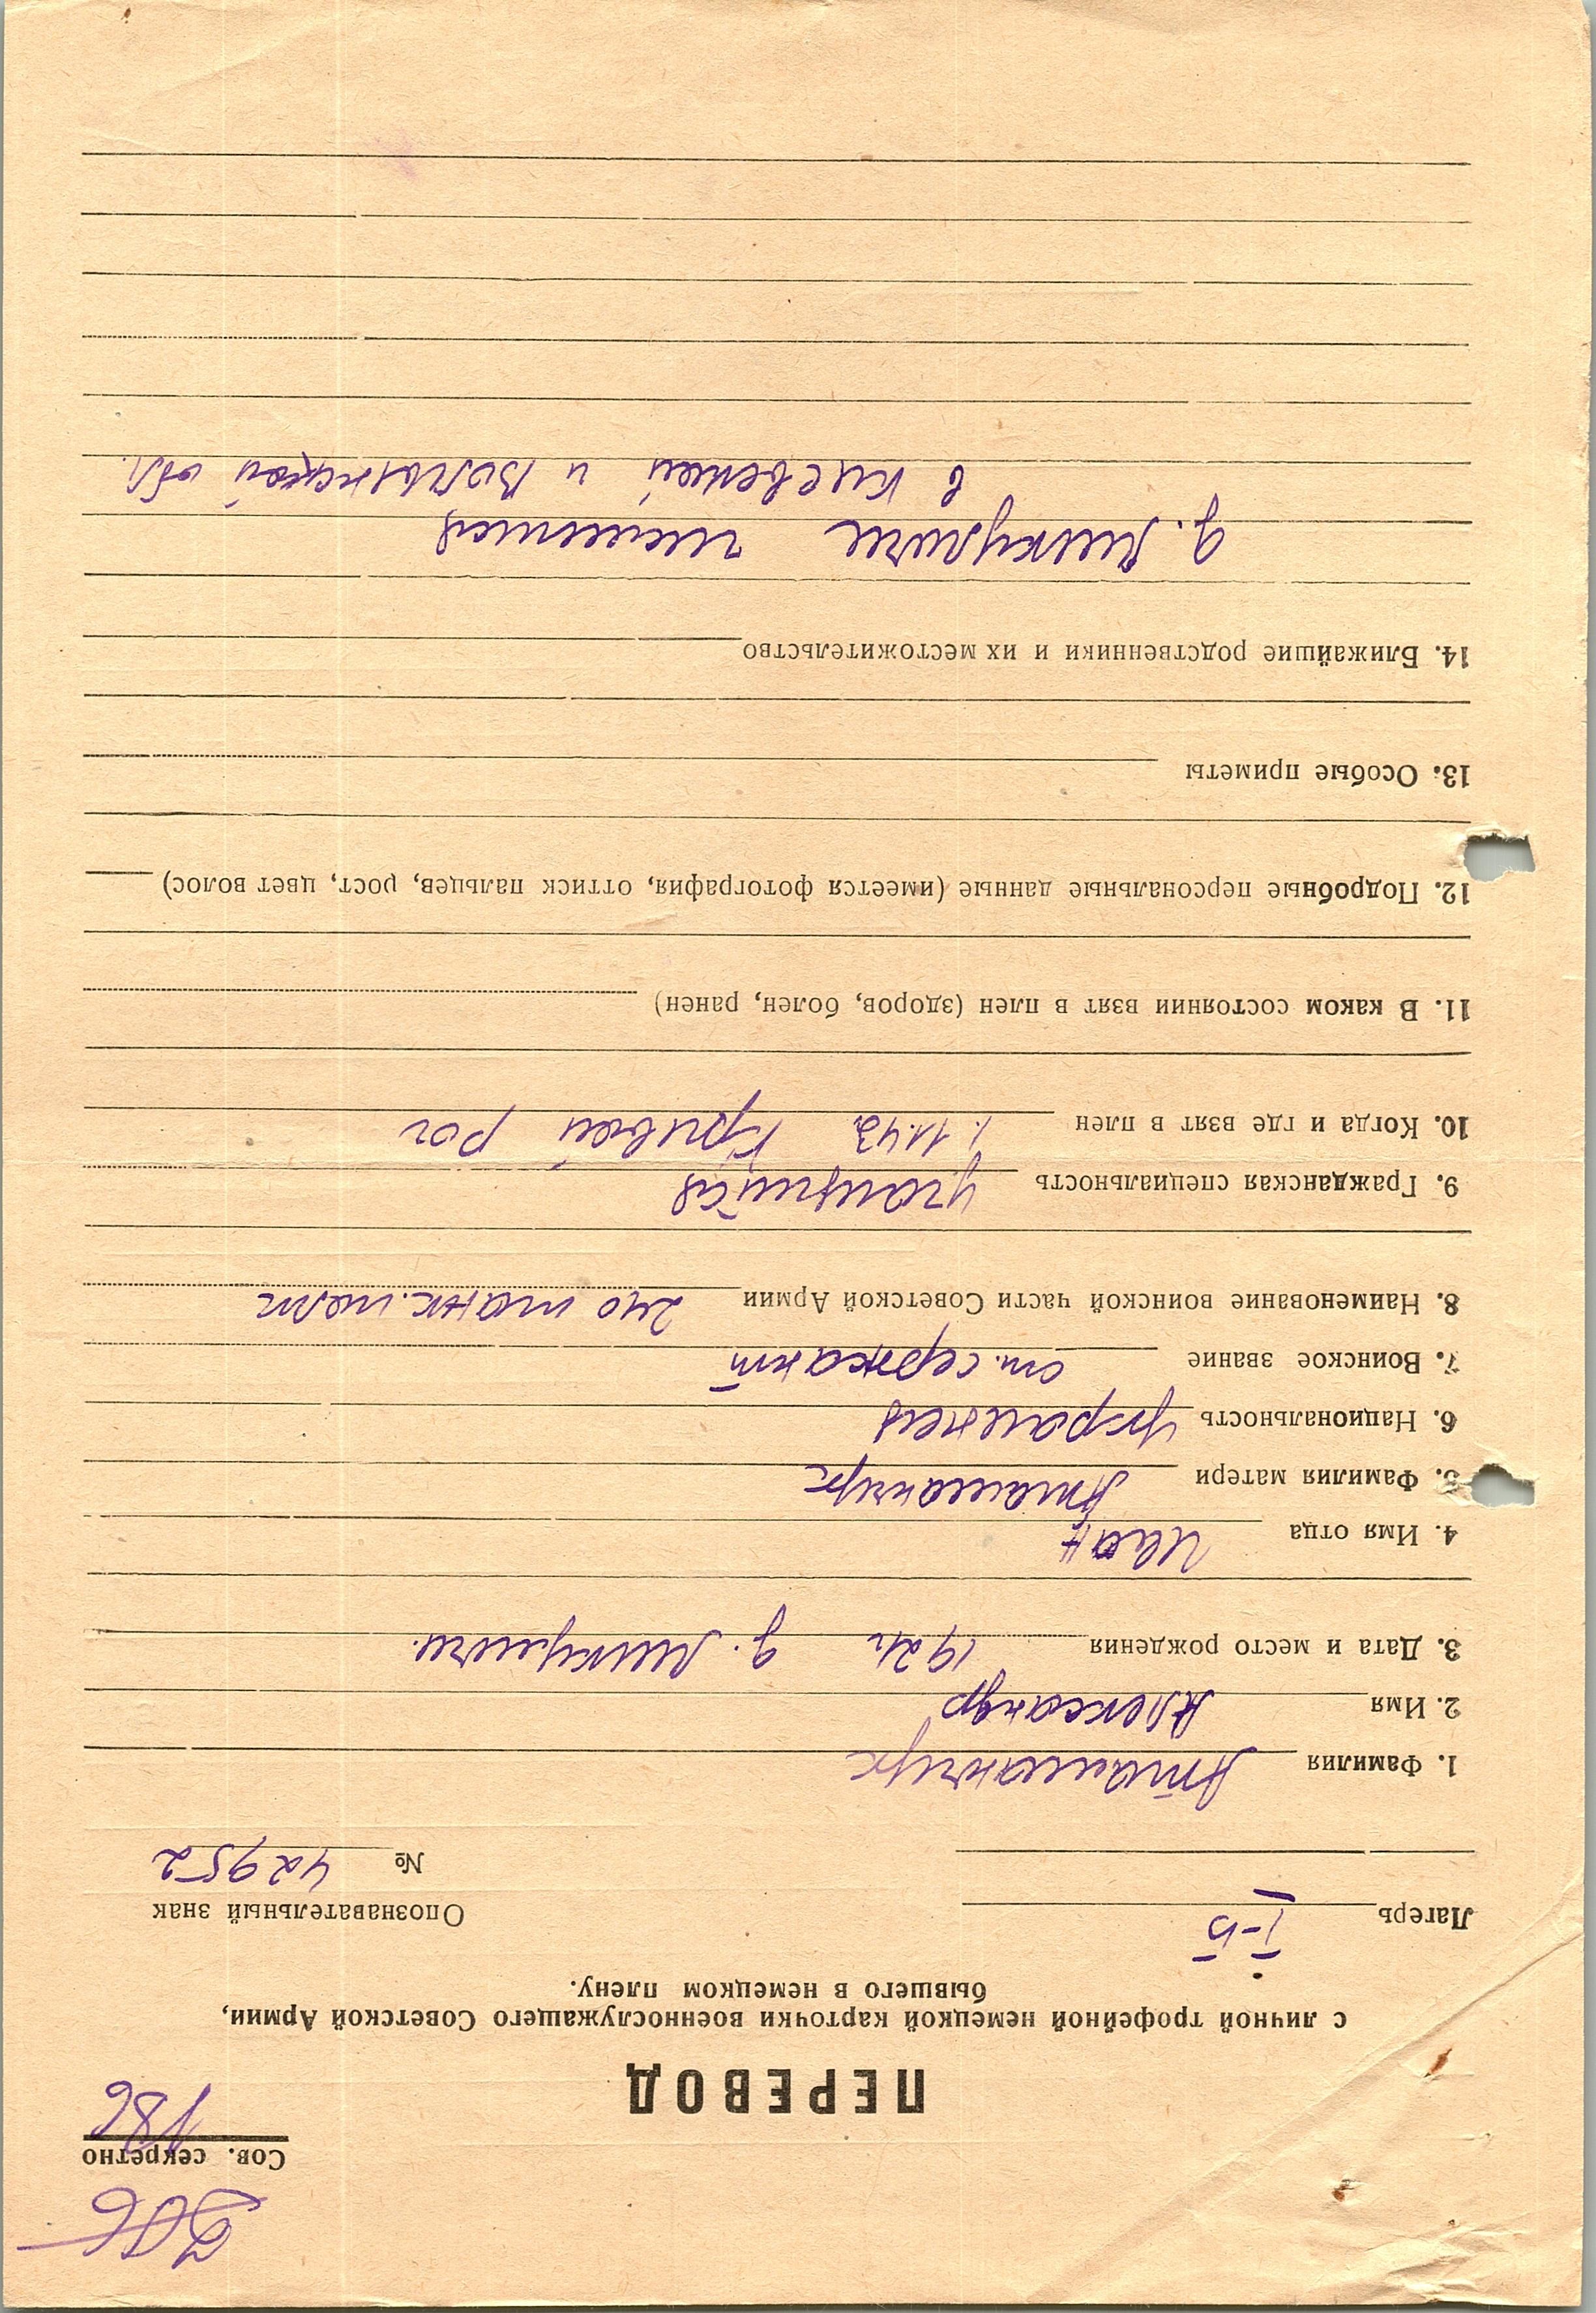 206
Сов. секретно
186
ПЕРЕВОД
с личной трофейной немецкой карточки военнослужащего Советской Армии,
бывшего в немецком плену.
Лагерь I-Б Опознавательный знак
№ 42952
1. Фамилия Аташанчук
2. Имя Александр
3. Дата и место рождения 1921г. д. Микуличи.
4. Имя отца Иван
5. Фамилия матери Аташанчук
6. Национальность украинец
7. Воинское звание ст. сержант
8. Наименование воинской части Советской Армии 240 танк. полк
9. Гражданская специальность учащийся
10. Когда и где взят в плен 1.11.43 Кривой Рог
11. В каком состоянии взят в плен (здоров, болен, ранен)
12. Подробные персональные данные (имеется фотография, оттиск пальцев, рост, цвет волос)
13. Особые приметы
14. Ближайшие родственники и их местожительство
д. Микуличи имеются
в Киевской и Волынской обл.